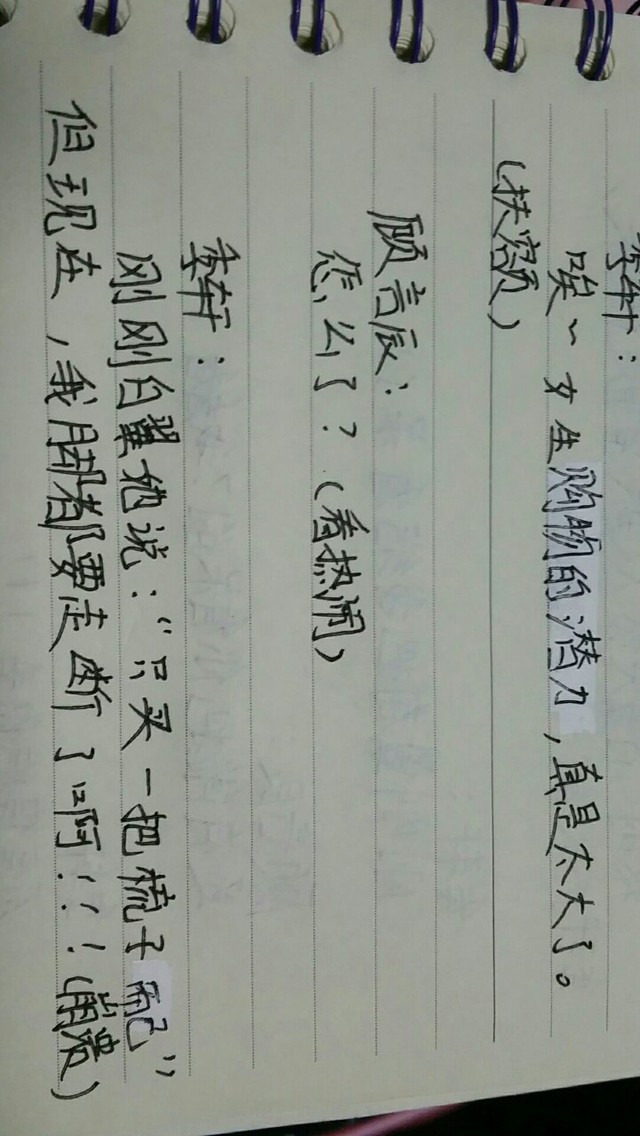 季轩：
唉～女生购物的潜力，真是太大了。
（扶额）
顾言辰：
怎么了？（看热闹）
季轩：
刚刚白翼她说：“只买一把梳子而已”
但现在，我脚都要走断了啊！！！（崩溃）